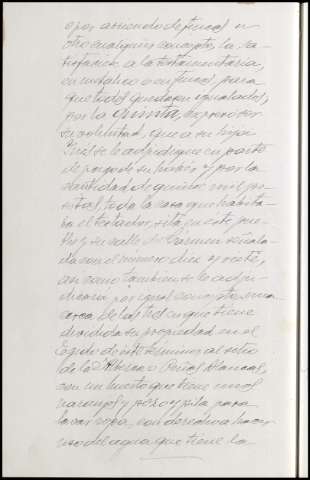 o por arriendo de fincas u
otro cualquier concepto, la sa-
tisfacción a la testamentaría,
en metálico o en fincas, para
que todos queden igualados,
por la quinta, expresó ser
su voluntad, que a su hija
Inés se le adjudique en parte
de pago de su haber y por la
cantidad de quince mil pe-
setas, toda la casa que habita-
ba el testador, sita en este pue-
blo y su calle del Carmen señala-
da con el número diez y siete,
así como también se le adju-
dicaría, por igual concepto, una
cerca de las tres en que tiene
dividida su propiedad en el
Egido de este término, al sitio
de la Alberca o Peñas Blancas,
con un huerto que tiene unos
naranjos y pozo y pila para
lavar ropa, con derecho a hacer
uso del agua que tiene la